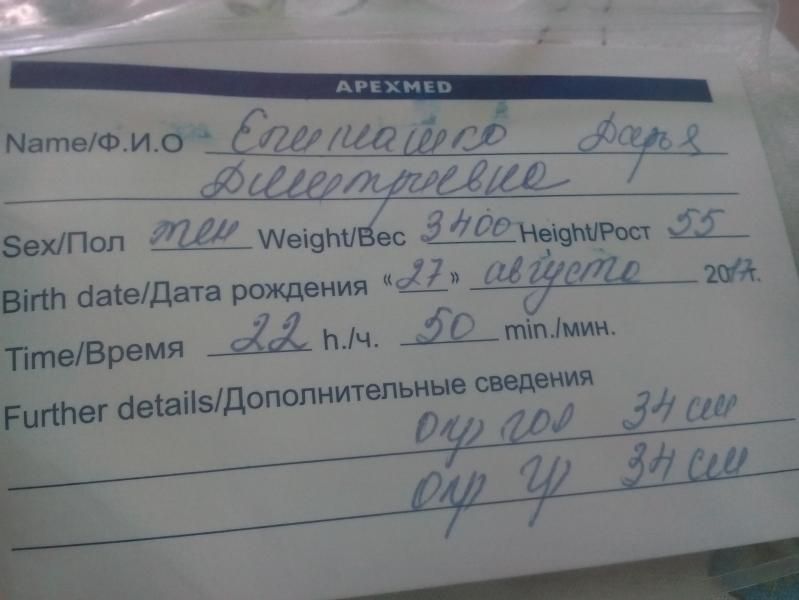 APEXMED
Name/Ф.И.О Епишашко Дарья
Дмитриевна
Sex/Пол жен Weight/Вес 3400 Height/Рост 55
Birth date/Дата рождения «27» августа 2017г.
Time/Время 22 h./ч. 50 min./мин.
Further details/Дополнительные сведения
окр гол 34 см
окр гр 34 см